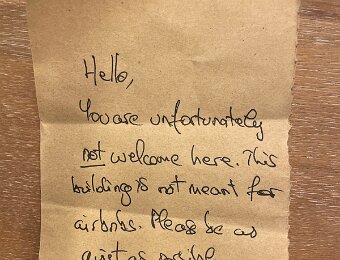 Hello,
You are unfortunately
not welcome here. This
building is not meant for
airbnbs. Please be as
quiet as